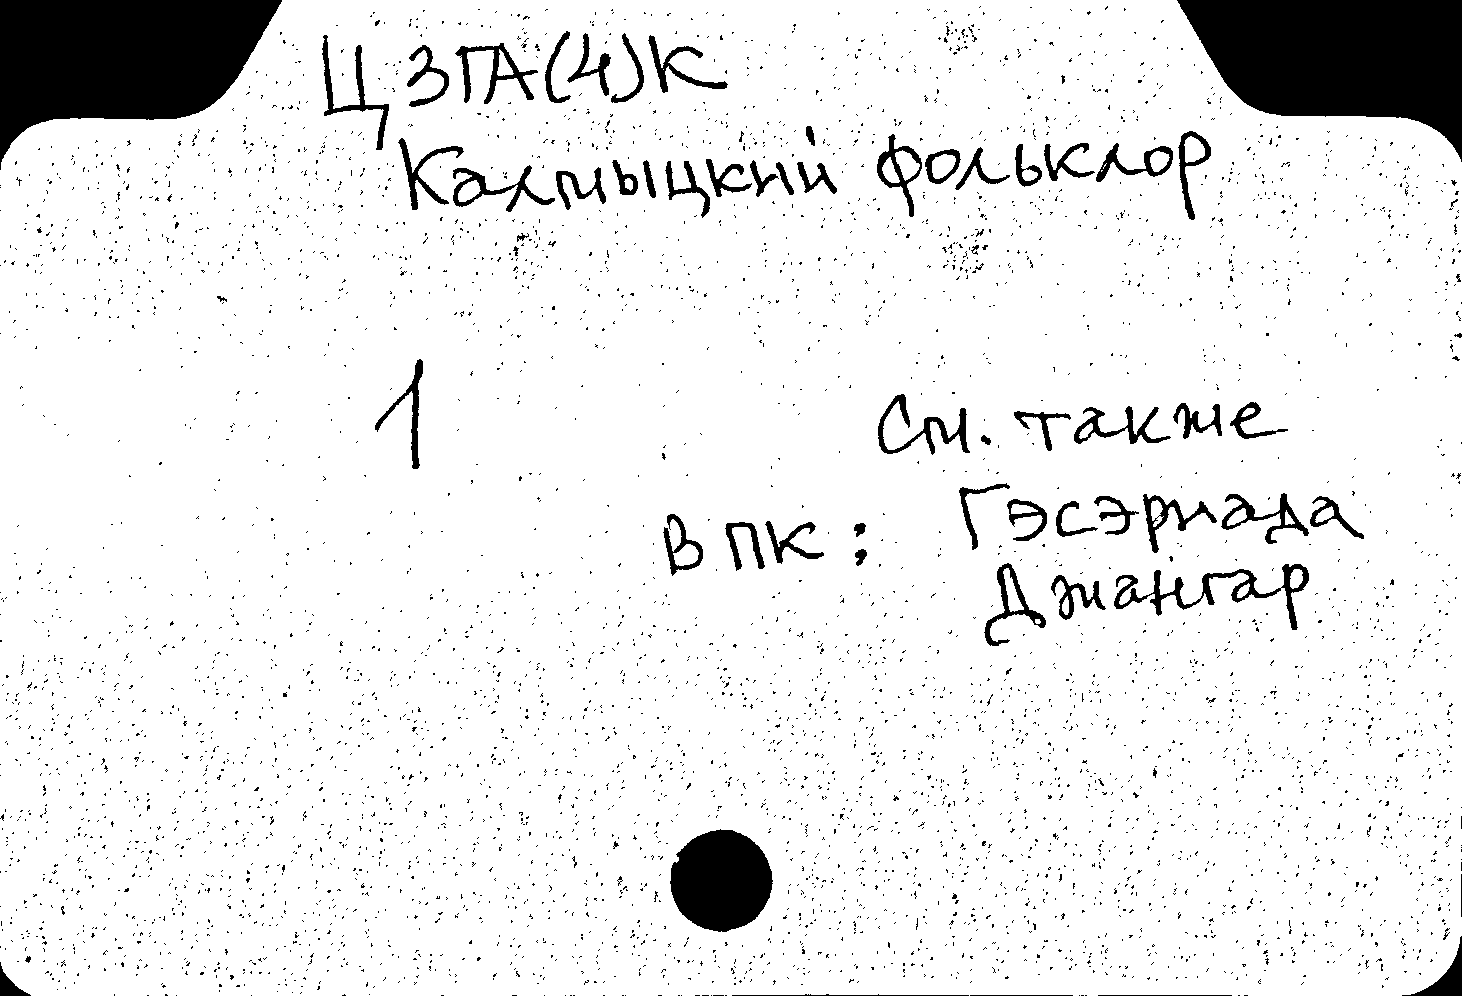 Ц3ГА(4)К
Калмыцкий фольклор
1
См. также
в ПК: Гэсэриада
Джангар